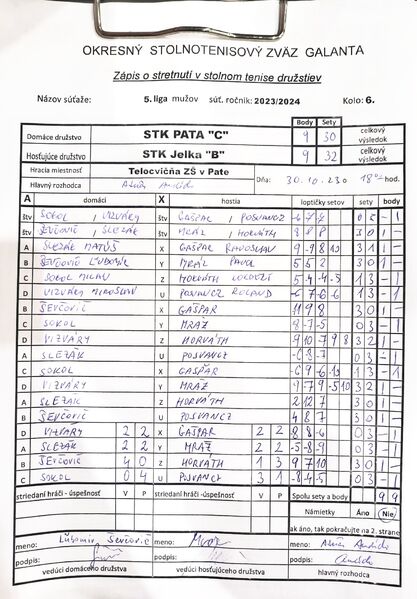 OKRESNÝ STOLNOTENISOVÝ ZVÄZ GALANTA
Zápis o stretnutí v stolnom tenise družstiev
Názov súťaže: 5. liga mužov súť. ročník: 2023/2024 Kolo: 6.
Body Sety
Domáce družstvo STK PATA "C" 9 30 celkový výsledok
Hosťujúce družstvo STK Jelka "B" 9 32 celkový výsledok
Hracia miestnosť Telocvičňa ZŠ v Pate
Hlavný rozhodca Dňa: 30.10.23 18 hod.
A domáci X hostia loptičky setov sety body
štv SOKOL / VIZVÁRY štv GAŠPAR / POSVANCZ 0 3 - 1
štv ŠEVČOVIČ / SLEZÁK štv MRÁZ / HORVÁTH 8 8 3 0 1 -
A SLEZÁK MATÚŠ X GAŠPAR RADOSLAV 9 -9 8 10 3 1 1 -
B ŠEVČOVIČ ĽUBOMÍR Y MRÁZ PAVOL 5 5 2 3 0 1 -
C SOKOL MILAN Z HORVÁTH -5 4 -4 -5 1 3 - 1
D VIZVÁRY MIROSLAV U POSVANCZ ROLAND -6 7 -6 -6 1 3 - 1
B ŠEVČOVIČ X GAŠPAR 11 9 8 3 0 1 -
C SOKOL Y MRÁZ -8 -7 -5 0 3 - 1
D VIZVÁRY Z HORVÁTH 3 2 1 -
A SLEZÁK U POSVANCZ 0 3 - 1
C SOKOL X GAŠPAR 1 3 - 1
D VIZVÁRY Y MRÁZ 3 2 1 -
A SLEZÁK Z HORVÁTH 2 12 7 3 0 1 -
B ŠEVČOVIČ U POSVANCZ 4 8 7 3 0 1 -
D VIZVÁRY 2 2 X GAŠPAR 2 2 -8 -8 -6 0 3 - 1
A SLEZÁK 2 2 Y MRÁZ 2 2 -5 -8 -9 0 3 - 1
B ŠEVČOVIČ 4 0 Z HORVÁTH 1 3 9 7 10 3 0 1 -
C SOKOL 0 4 U POSVANCZ 3 1 -8 -4 -5 0 3 - 1
striedaní hráči - úspešnosť V P striedaní hráči - úspešnosť V P Spolu sety a body 9 9
Námietky Áno Nie
ak áno, tak pokračujte na 2. strane
meno: Ľubomír Ševčovič meno: meno:
podpis: podpis: podpis:
vedúci domáceho družstva vedúci hosťujúceho družstva hlavný rozhodca